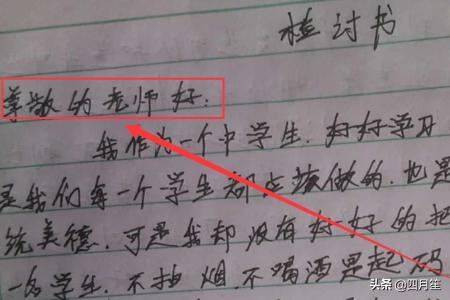 检讨书
尊敬的老师好：
我作为一个中学生.好好学习
是我们每一个学生都应该做的.也是
统美德.可是我却没有好好的把
一名学生.不抽烟.不喝酒是起码
头条 @四月笙